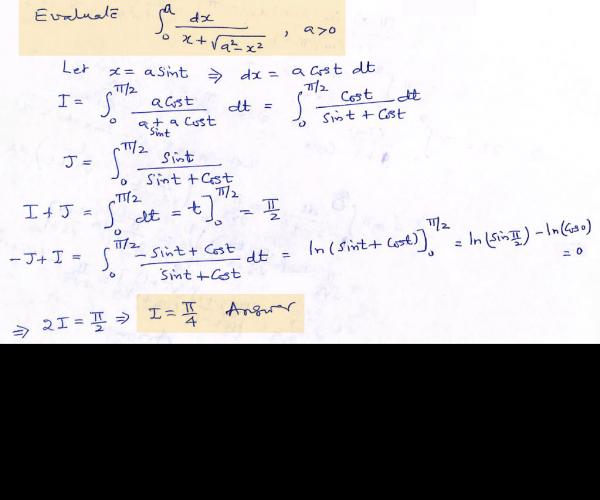 Evaluate ∫₀ᵃ dx / (x + √(a² − x²)) , a>0
Let x = a Sint ⇒ dx = a Cost dt
I = ∫₀^{π/2} a Cost / (a Sint + a Cost) dt = ∫₀^{π/2} Cost / (Sint + Cost) dt
J = ∫₀^{π/2} Sint / (Sint + Cost)
I + J = ∫₀^{π/2} dt = t]₀^{π/2} = π/2
-J + I = ∫₀^{π/2} (-Sint + Cost) / (Sint + Cost) dt = ln (Sint + Cost)]₀^{π/2} = ln(Sin π/2) - ln(Cos 0)
= 0
⇒ 2I = π/2 ⇒ I = π/4 Answer